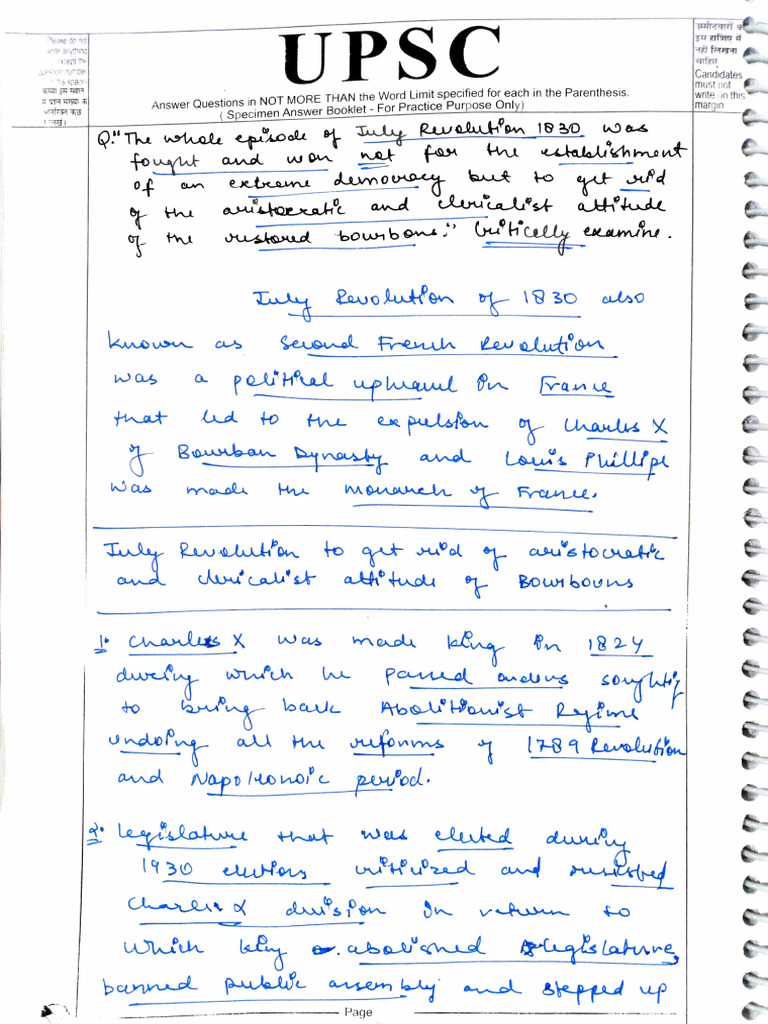 UPSC
Please do not
write anything
except the
question number
in this space
कृपया इस स्थान
में प्रश्न संख्या के
अतिरिक्त कुछ
न लिखें।
उम्मीदवारों को
इस हाशिए में
नहीं लिखना
चाहिए
Candidates
must not
write on this
margin
Answer Questions in NOT MORE THAN the Word Limit specified for each in the Parenthesis.
( Specimen Answer Booklet - For Practice Purpose Only)
Q. "The whole episode of July Revolution 1830 was
fought and won not for the establishment
of an extreme democracy but to get rid
of the aristocratic and clericalist attitude
of the restored bourbons." Critically examine.
July Revolution of 1830 also
known as Second French Revolution
was a political upheaval in France
that led to the expulsion of Charles X
of Bourban Dynasty and Louis Phillipe
was made the monarch of France.
July Revolution to get rid of aristocratic
and clericalist attitude of Bourbouns
1. Charles X was made king in 1824
during which he passed orders sought
to bring back Abolitionist Regime
undoing all the reforms of 1789 Revolution
and Napoleonoic period.
2. Legislature that was elected during
1930 elections criticized and resisted
Charles X division In return to
which king abolished legislature,
banned public assembly and stepped up
Page